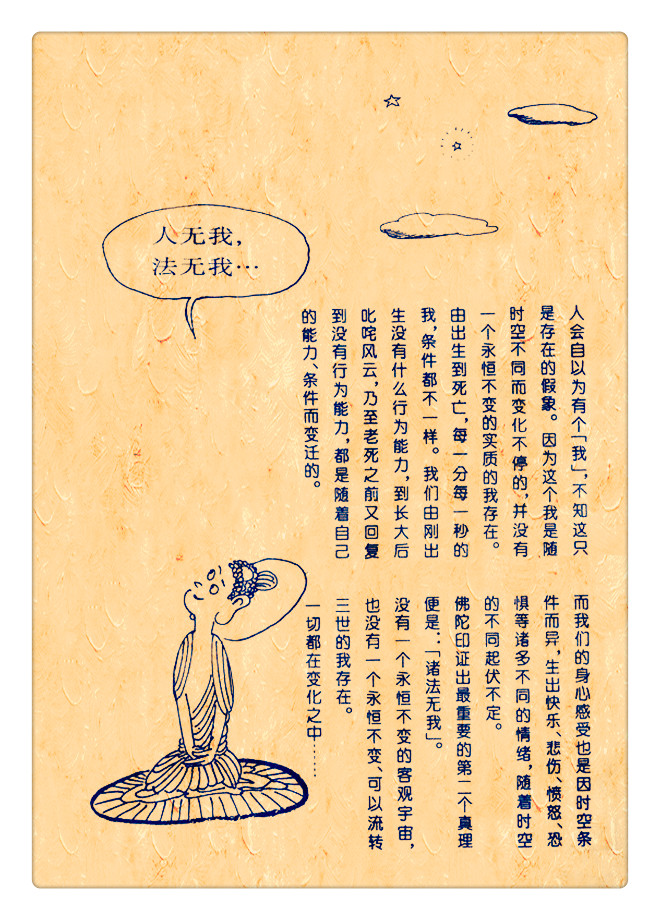 人无我，
法无我…
人会自以为有个「我」，不知这只
是存在的假象。因为这个我是随
时空不同而变化不停的，并没有
一个永恒不变的实质的我存在。
由出生到死亡，每一分每一秒的
我，条件都不一样。我们由刚出
生没有什么行为能力，到长大后
叱咤风云，乃至老死之前又回复
到没有行为能力，都是随着自己
的能力、条件而变迁的。
而我们的身心感受也是因时空条
件而异，生出快乐、悲伤、愤怒、恐
惧等诸多不同的情绪，随着时空
的不同起伏不定。
佛陀印证出最重要的第二个真理
便是：「诸法无我」。
没有一个永恒不变的客观宇宙，
也没有一个永恒不变、可以流转
三世的我存在。
一切都在变化之中……